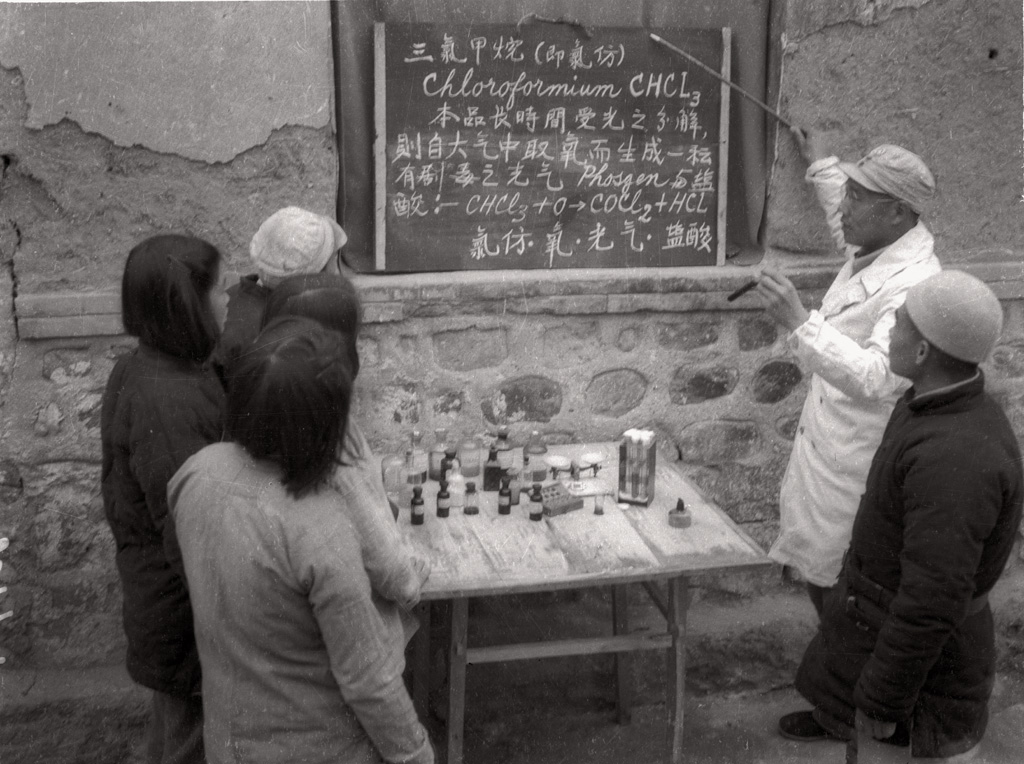 三氯甲烷(即氯仿)
Chloroformium CHCL3
本品长時間受光之分解,
則自大气中取氧,而生成一种
有剧毒之光气 Phosgen与盐
酸:— CHCl3+O→COCl2+HCl
氯仿·氧·光气·盐酸